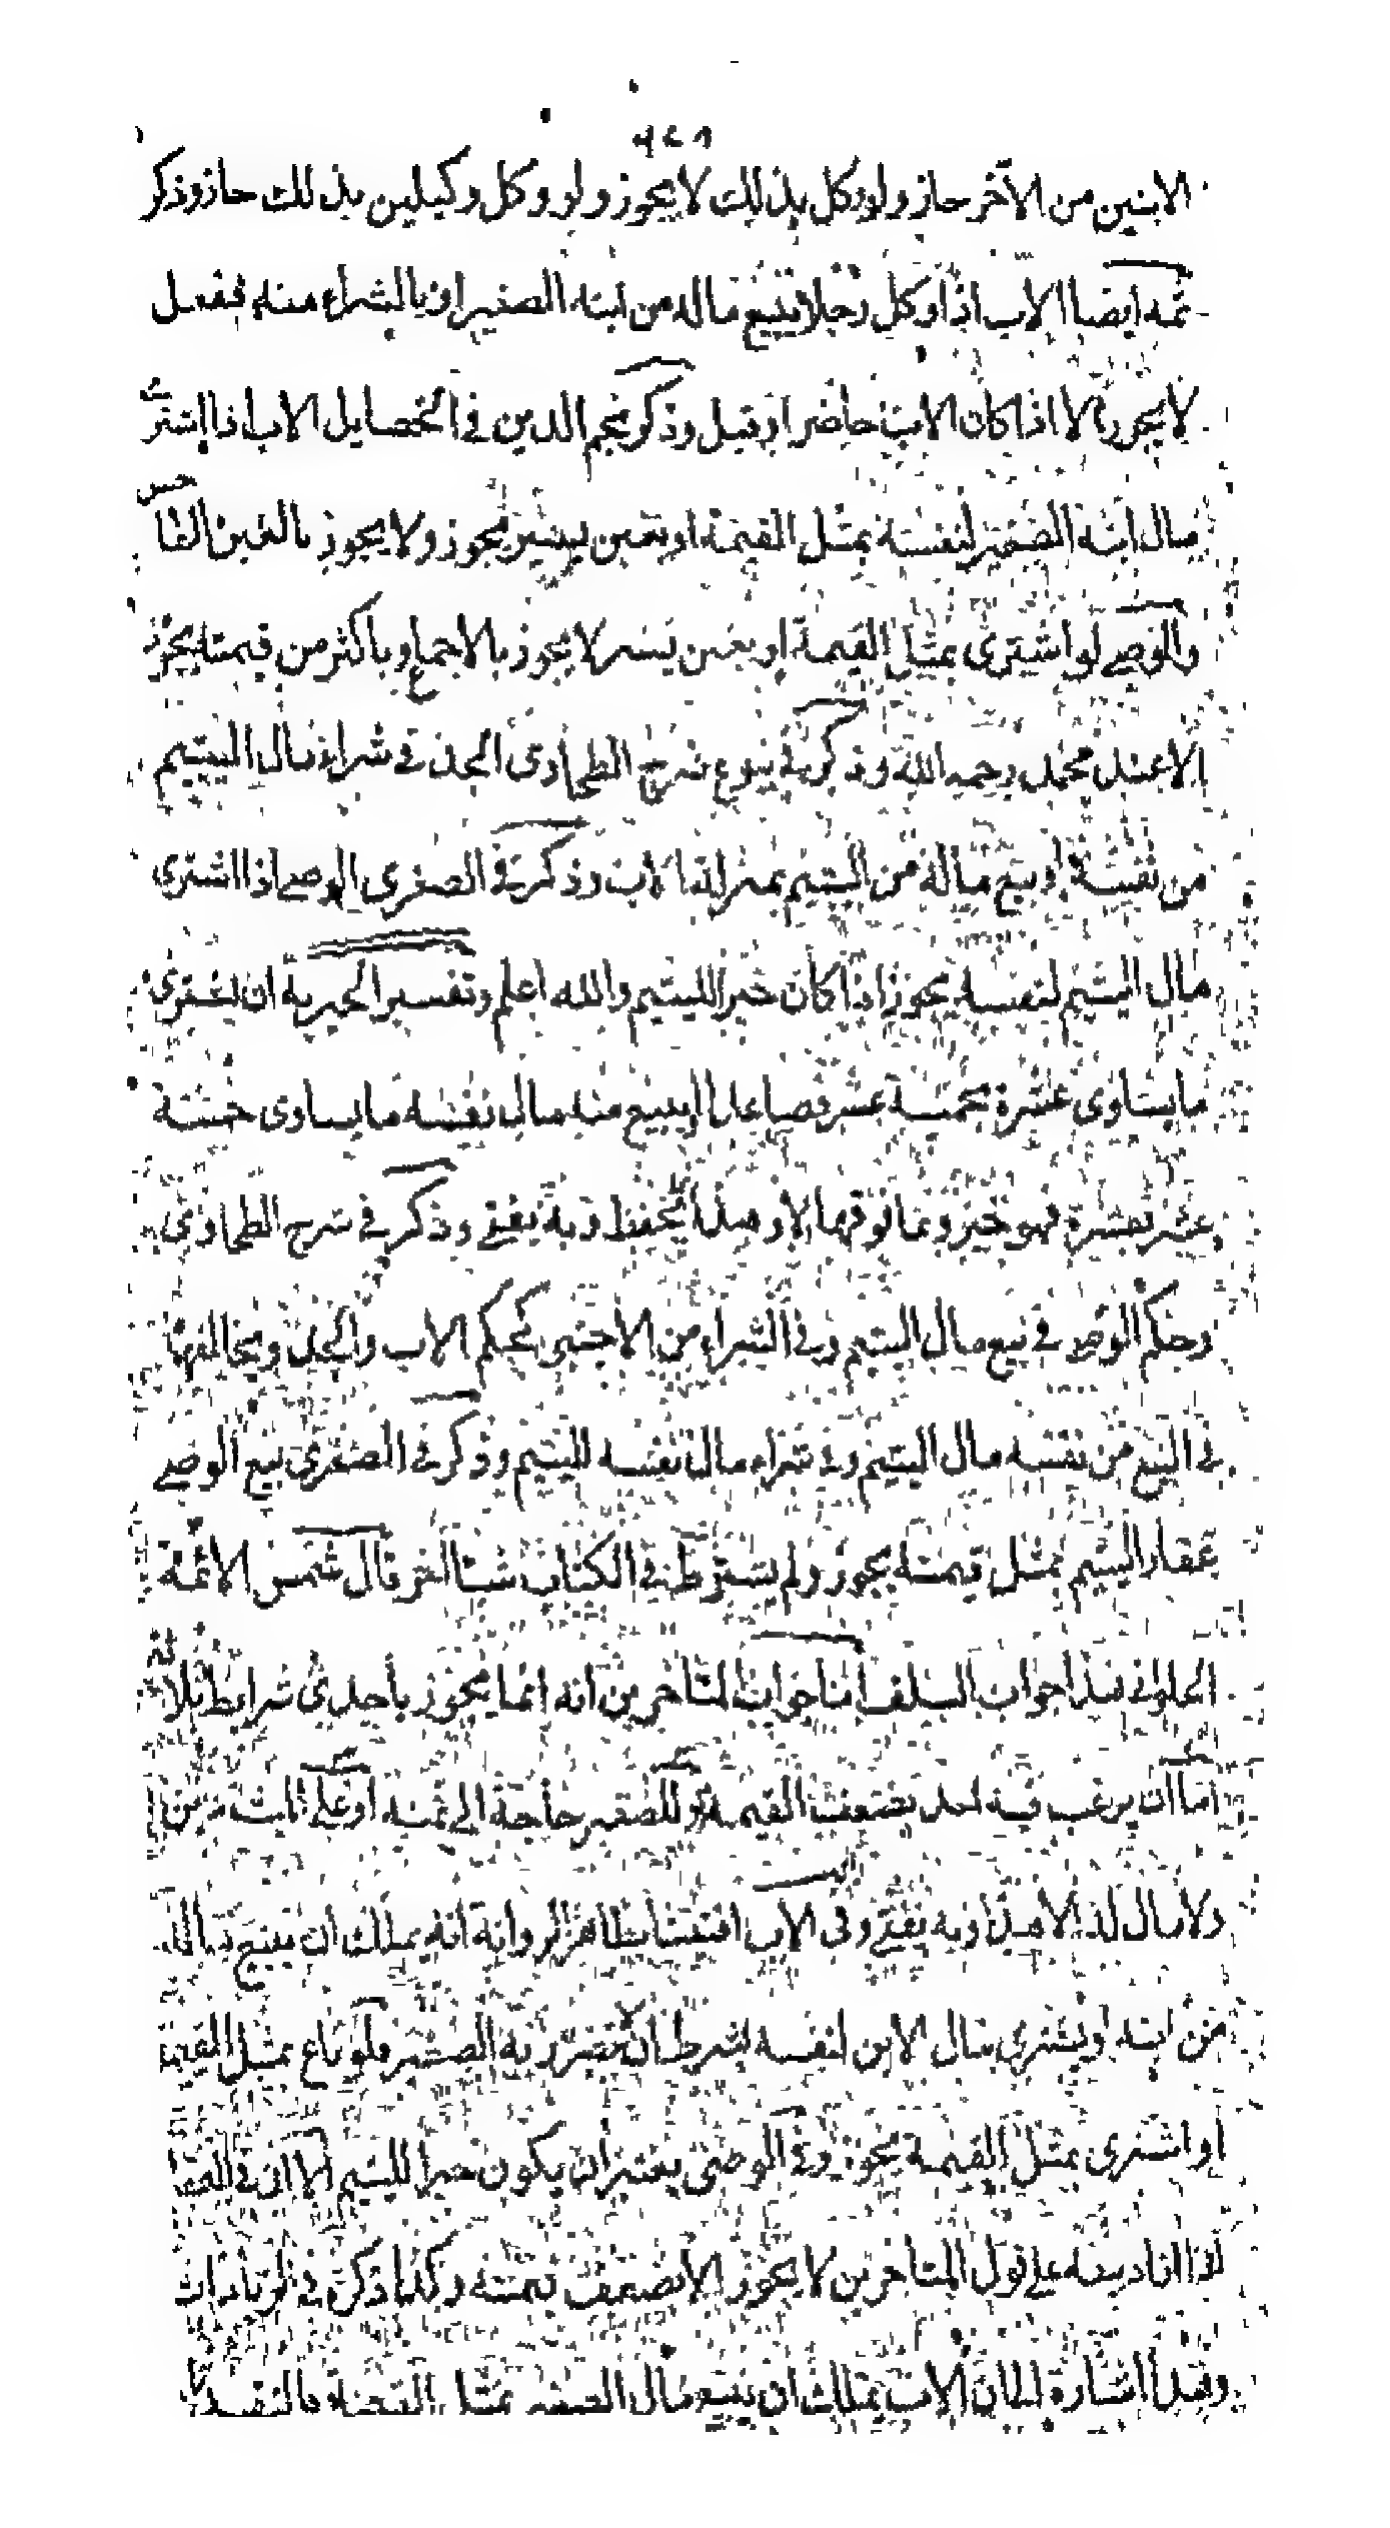 الابنين من الآخر جاز ولو وكل بذلك لا يجوز ولو وكل وكيلين بذلك جاز وذكر
ثمه ايضا الاب اذا وكل رجلا يبيع ماله من ابنه الصغير او بالشراء منه ففعل
لا يجوز الا اذا كان الابن حاضرا وقبل وذكر نجم الدين في الخصايل الاب اذا اشترى
مال ابنه الصغير لنفسه بمثل القيمة او بغبن يسير يجوز ولا يجوز بالغبن الفاحش
والوصي لو اشترى بمثل القيمة او بغبن يسير لا يجوز بالاجماع وباكثر من قيمته يجوز
الا عند محمد رحمه الله وذكر في بيوع شرح الطحاوى الجد في شرائه مال اليتيم
من نفسه او بيع ماله من اليتيم بمنزلة الاب وذكر في الصغرى الوصي اذا اشترى
مال اليتيم لنفسه يجوز اذا كان خيرا لليتيم والله اعلم وتفسير الخيرية ان يشترى
ما يساوى عشرة بخمسة عشر فصاعدا او يبيع منه مال نفسه ما يساوى خمسة
عشر بعشرة فهو خير وما فوقهما لا وهذا يحفظ وبه يفتي وذكر في شرح الطحاوى
وحكم الوصي في بيع مال اليتيم وفي الشراء من الاجنبى كحكم الاب والجد ويخالفهما
في البيع من نفسه مال اليتيم وفي شراء مال نفسه لليتيم وذكر في الصغرى بيع الوصي
عقار اليتيم بمثل قيمته يجوز ولم يشترط في الكتاب شيئا آخر قال شمس الائمة
الحلواني هذا جواب السلف اما جواب المتأخرين انه انما يجوز باحدى شرايط ثلاثة
اما ان يرغب فيه احد بضعف القيمة او للصغير حاجة الى ثمنه او على الميت دين
ولا مال له الا هذا وبه يفتي وفى الاب ظاهر الرواية انه يملك ان يبيع ماله
من ابنه او يشترى مال الابن لنفسه بشرط ان لا يضر به الصغير فلو باع بمثل القيمة
او اشترى بمثل القيمة يجوز وفي الوصى يعتبر ان يكون خيرا لليتيم الا ان في
على قول المتأخرين لا يجوز الا بضعف قيمته وكذا ذكر في
اشارة الى ان الاب يملك ان يبيع مال الصغير بمثل القيمة